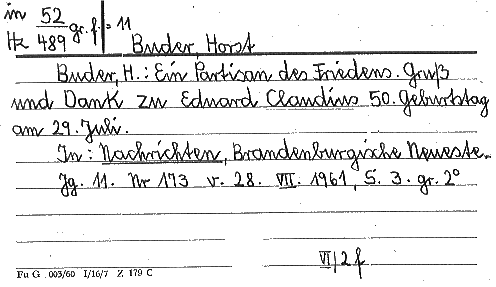 in 52 gr. f. = 11
Hz 489
Buder, Horst
Buder, H.: Ein Partisan des Friedens. Gruß
und Dank zu Eduard Claudius 50. Geburtstag
am 29. Juli.
In: Nachrichten, Brandenburgische Neueste.
Jg. 11. Nr 173 v. 28. VII. 1961, S. 3. gr. 2°
VI/2 f
Fu G . 003/60 I/16/7 Z 179 C